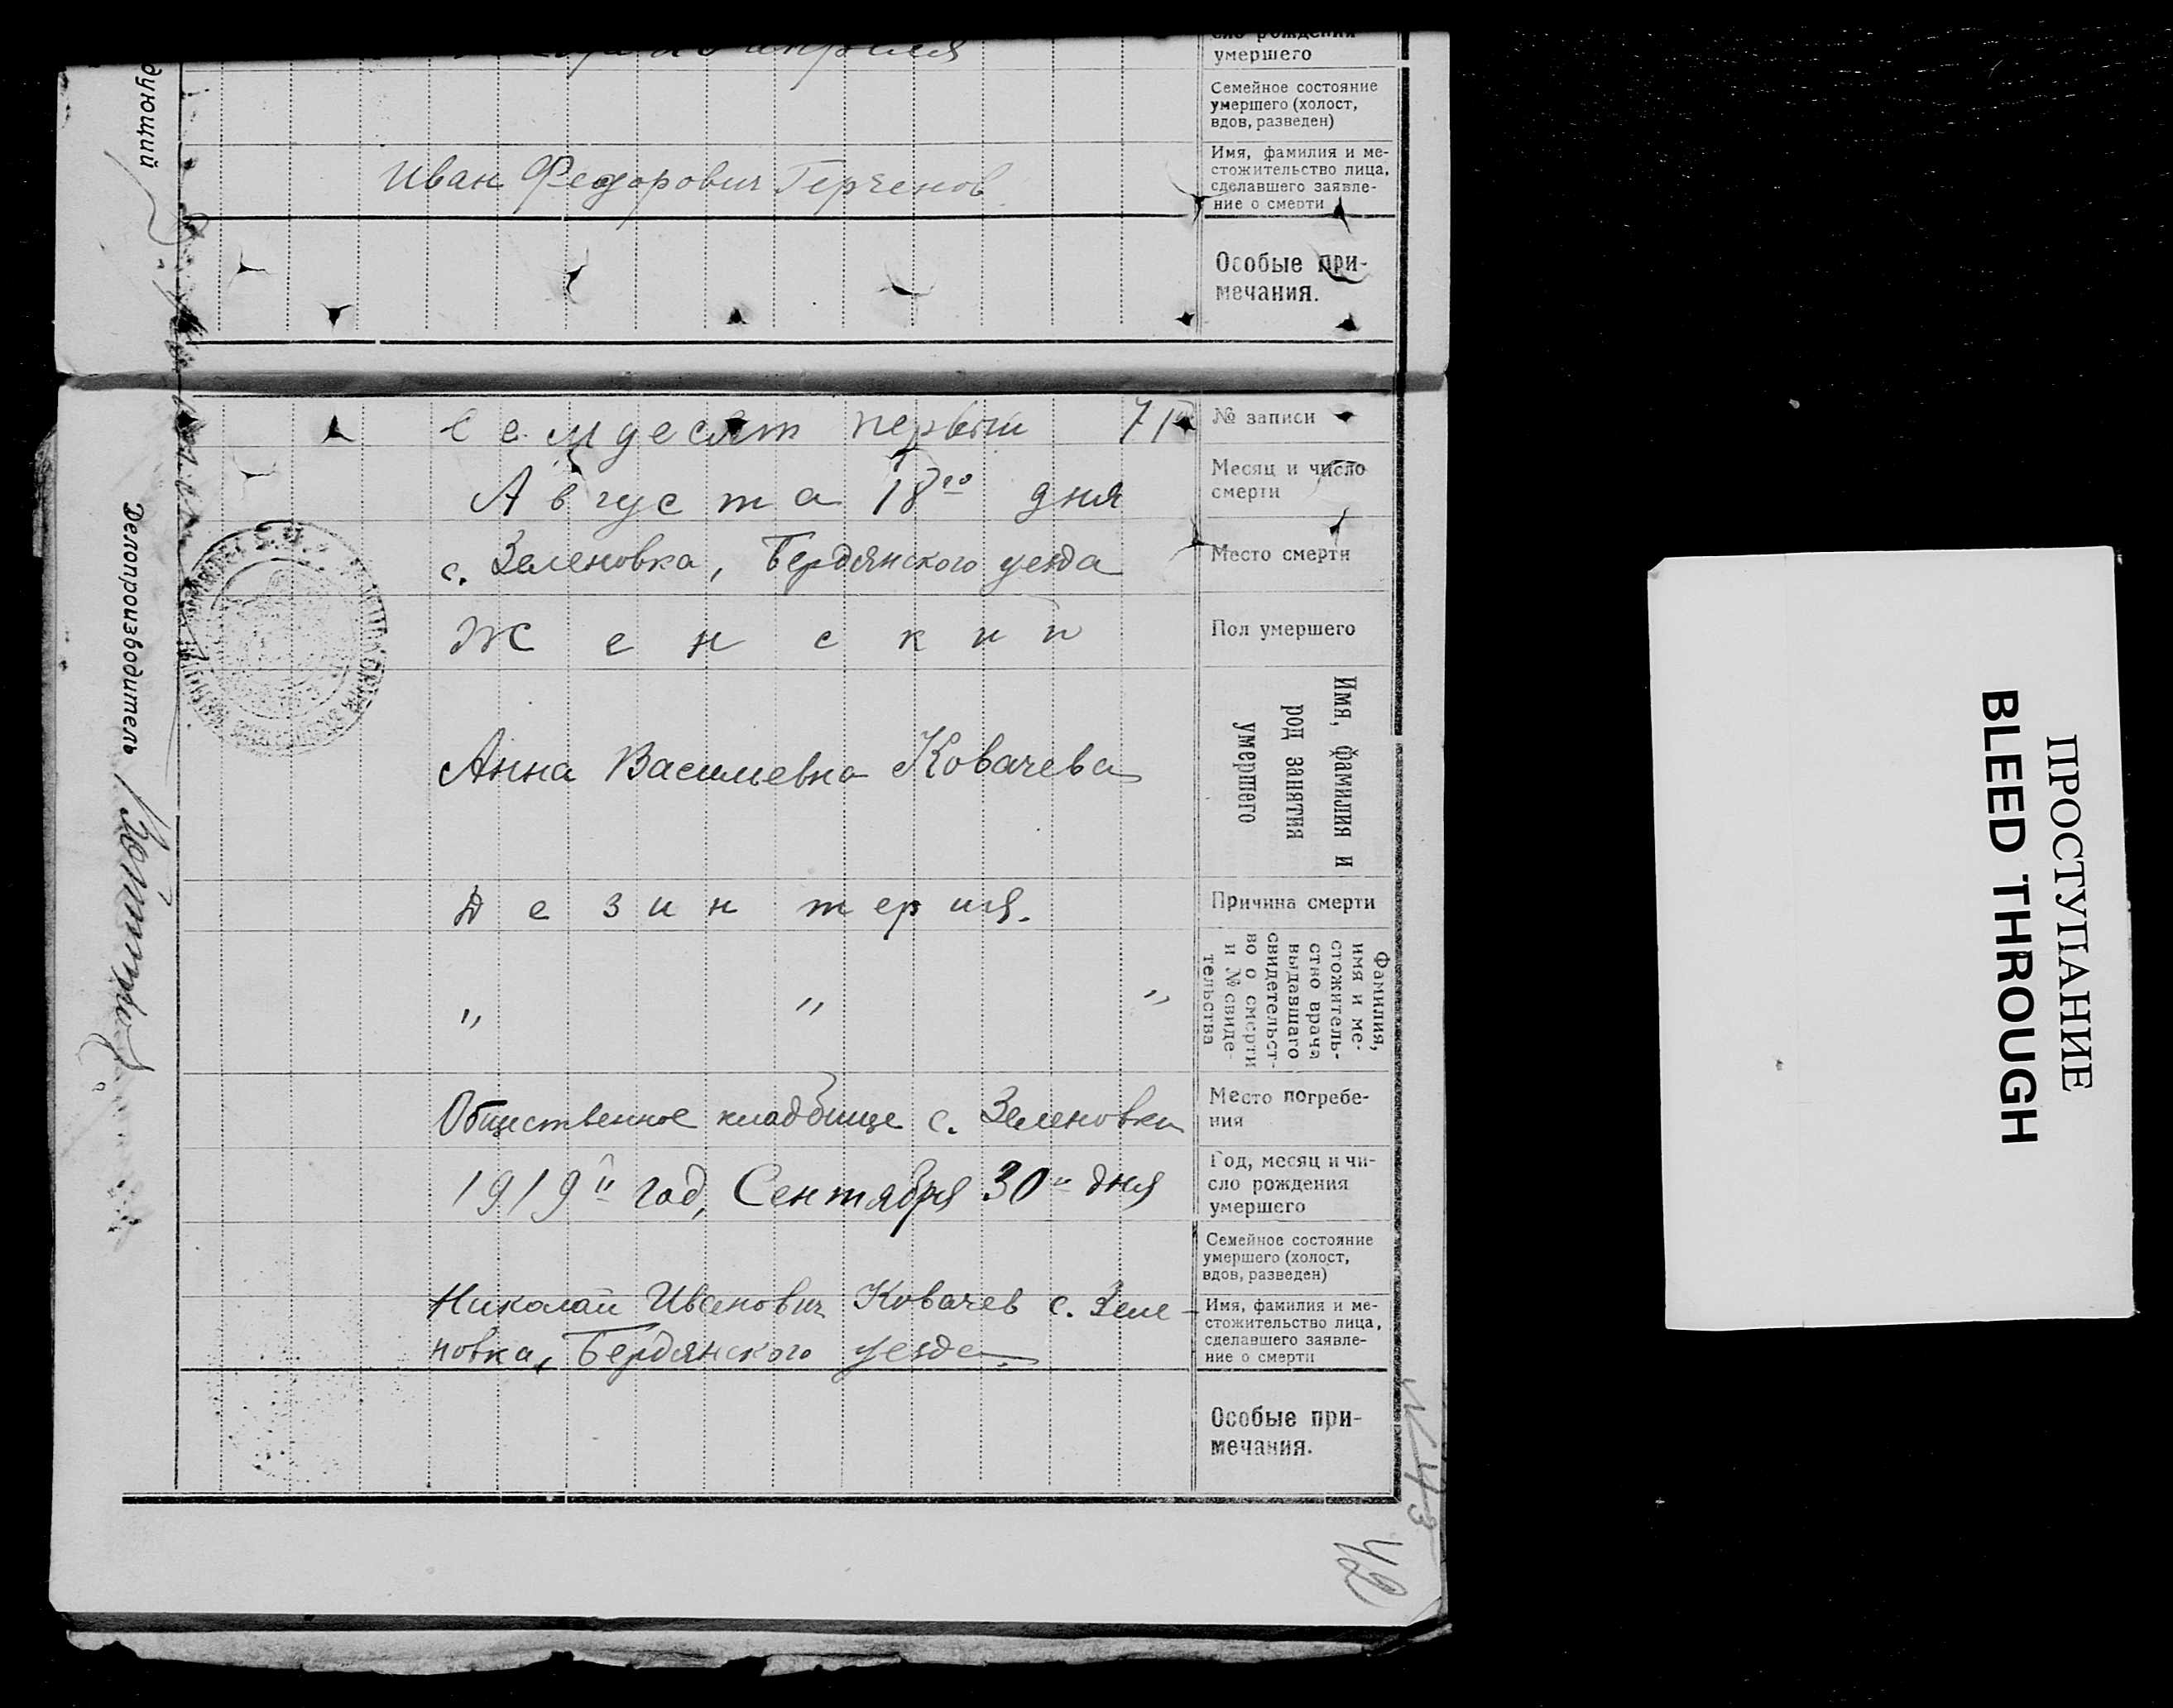 апреля
сло рождения
умершего
Семейное состояние
умершего (холост,
вдов, разведен)
Имя, фамилия и ме-
стожительство лица,
сделавшего заявле-
ние о смерти
Иван Федорович
Особые при-
мечания.
дующий
№ записи
Семдесят первый 71
Месяц и число
смерти
Августа 18го дня
Место смерти
с. Зеленовка, Бердянского уезда
Пол умершего
Женский
Имя, фамилия и
род занятия
умершего
Анна Васильевна Ковачева
Причина смерти
Дезинтерия.
Фамилия,
имя и ме-
стожитель-
ство врача
выдавшаго
свидетельст-
во о смерти
и № свиде-
тельства
" " "
Место погребе-
ния
Общественное кладбище с. Зеленовки
Год, месяц и чи-
сло рождения
умершего
1919й год, Сентября 30го дня
Семейное состояние
умершего (холост,
вдов, разведен)
Имя, фамилия и ме-
стожительство лица,
сделавшего заявле-
ние о смерти
Николай Иванович Ковачев с. Зеле-
новка, Бердянского уезда.
Особые при-
мечания.
Делопроизводитель
42
ПРОСТУПАНИЕ
BLEED THROUGH